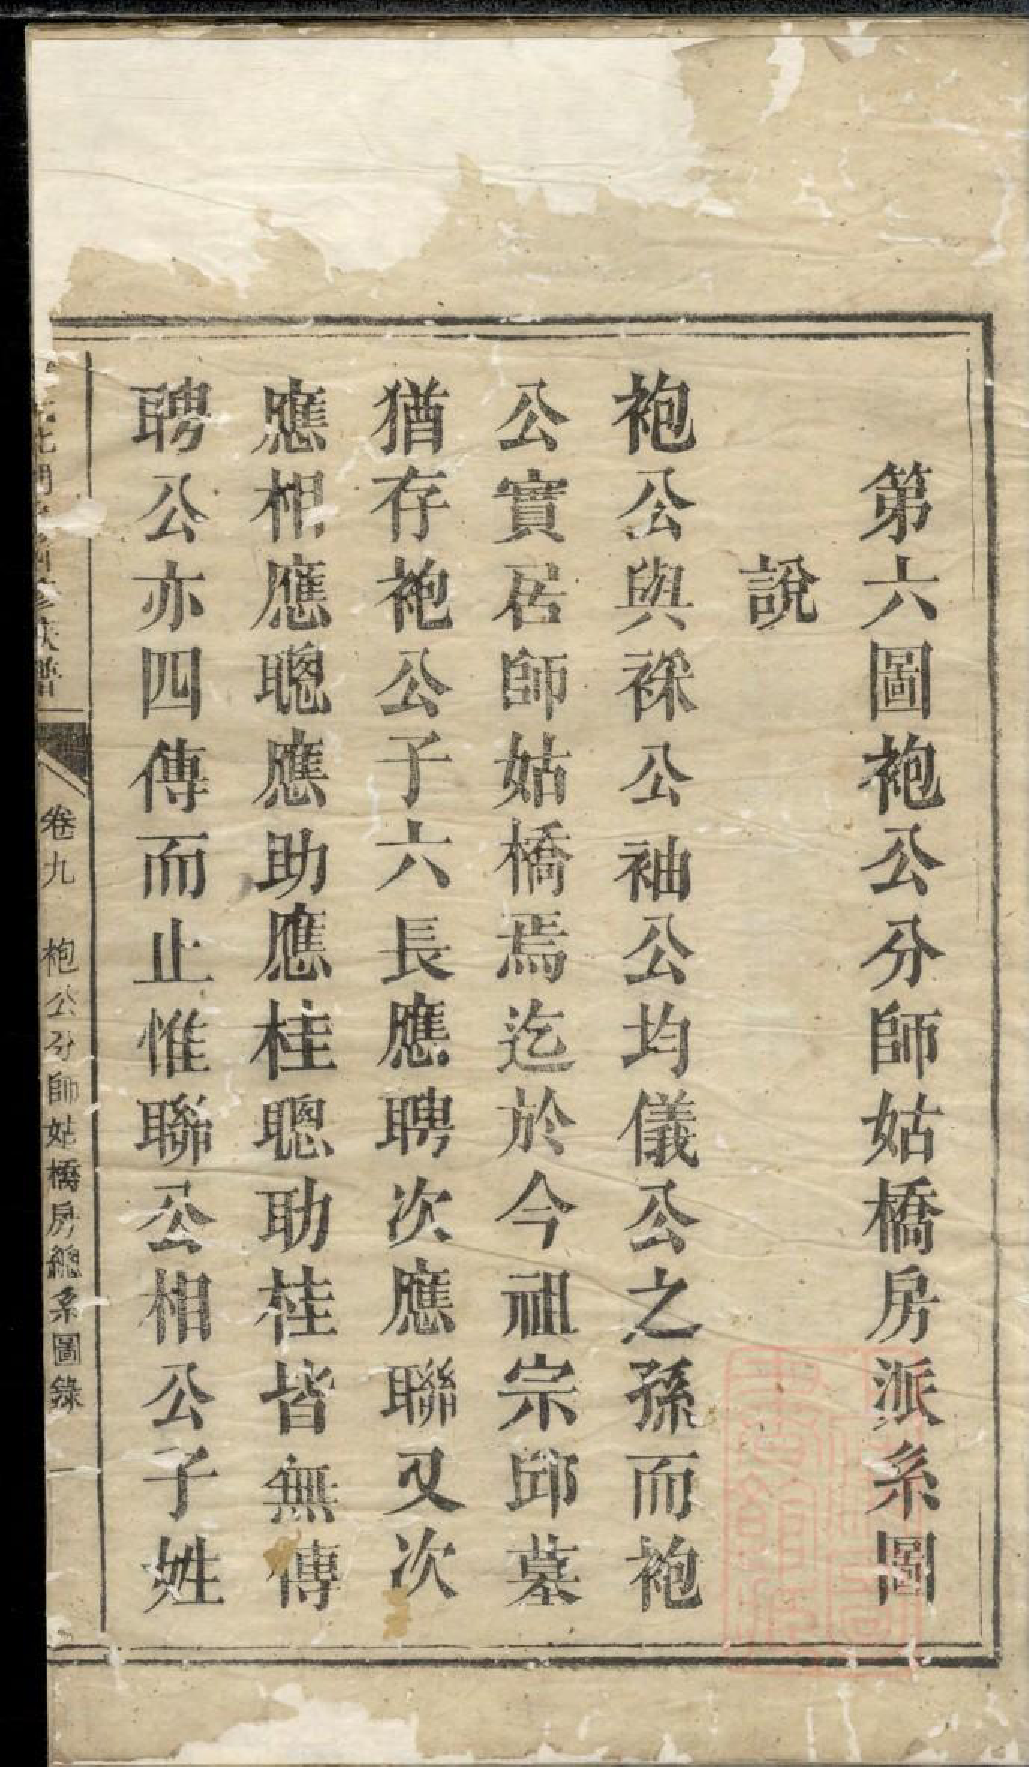 第六圖袍公分師姑橋房派系圖
說
袍公與裸公袖公均儀公之孫而袍
公實居師姑橋焉迄於今祖宗邱墓
猶存袍公子六長應聘次應聯又次
應相應聰應助應桂聰助桂皆無傳
聘公亦四傳而止惟聯公相公子姓
族譜
卷九
袍公分師姑橋房總系圖錄